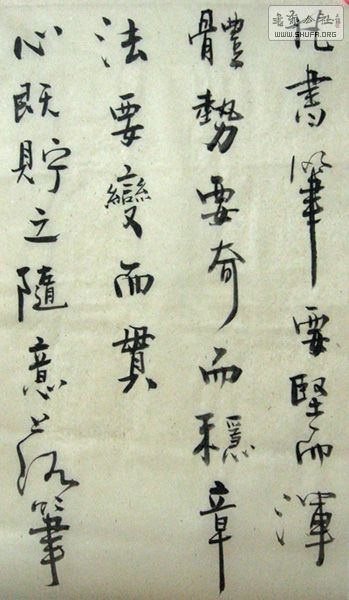 凡書筆要堅而渾
體勢要奇而穩章
法要變而貫
心既貯之隨意落筆
WWW.SHUFR.ORG